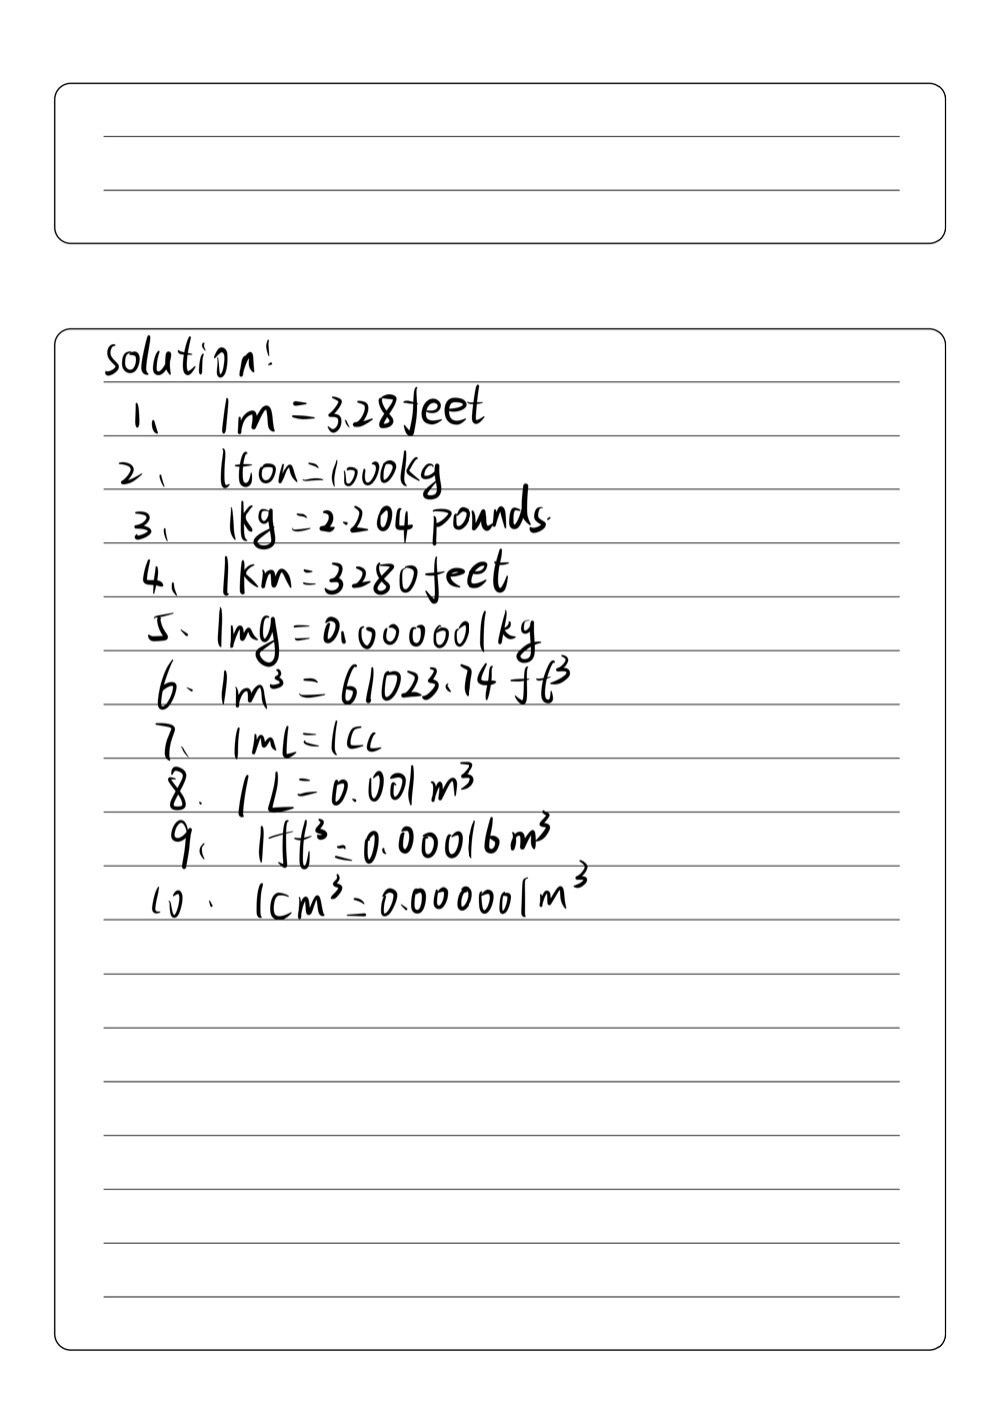 Solution!
1、 1m = 3.28feet
2、 1ton=1000kg
3、 1kg = 2.204 pounds.
4、 1km = 3280feet
5、 1mg = 0.000001kg
6. 1m³ = 61023.74 ft³
7、 1mL=1cc
8. 1L=0.001 m³
9、 1ft³=0.00016m³
10. 1cm³=0.000001m³